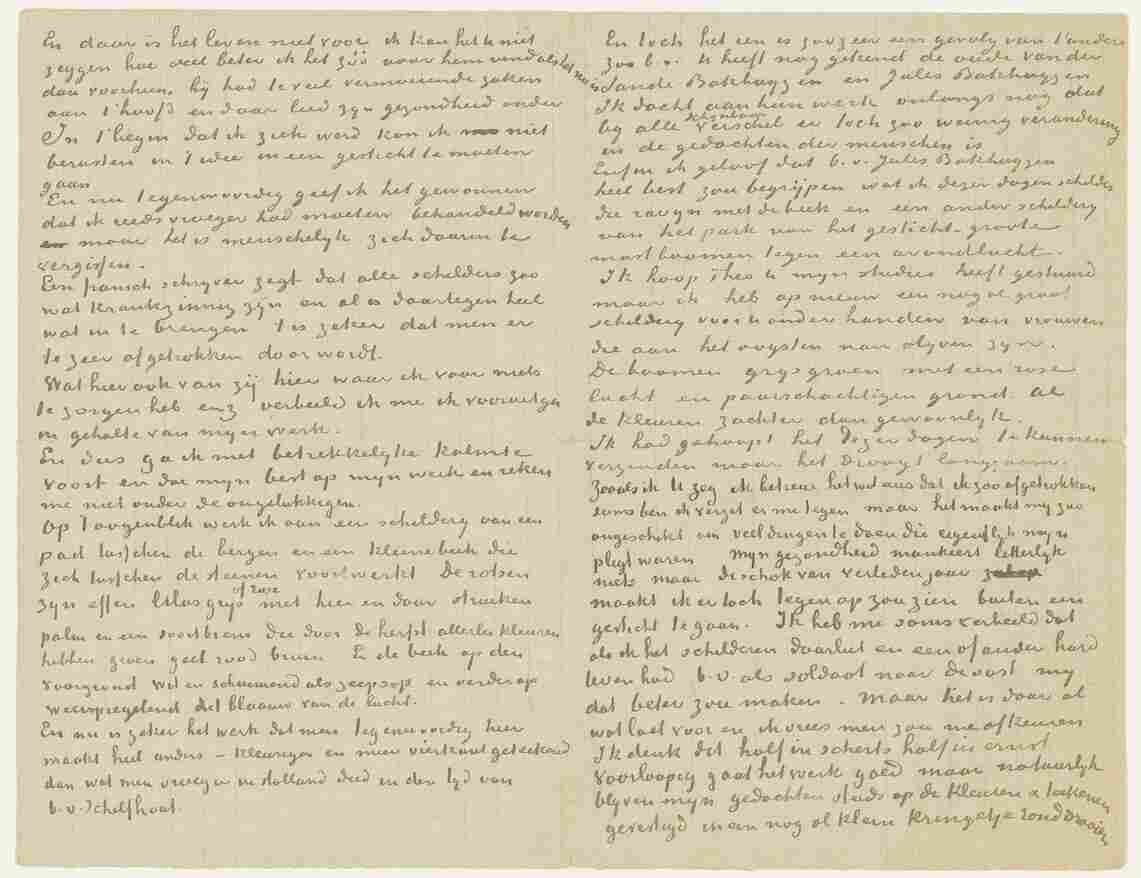 En daar is het leven niet voor ik kan het U niet
zeggen hoe veel beter ik het zóó voor hem vind als het was
dan voorheen, hij had te veel vermoeiende zaken
aan 't hoofd en daar leed zyn gezondheid onder
In 't begin dat ik ziek werd kon ik niet
berusten in 't idee in een gesticht te moeten
gaan
En nu tegenwoordig geef ik het gewonnen
dat ik reeds vroeger had moeten behandeld worden
en maar het is menschelyk zich daarin te
vergissen.
Een fransch schryver zegt dat alle schilders zoo
wat krankzinnig zyn en al is daartegen heel
wat in te brengen 't is zeker dat men er
te zeer afgetrokken door wordt.
Wat hier ook van zij hier waar ik voor niets
te zorgen heb enz verbeeld ik me ik vooruitga
in gehalte van myn werk.
En dus ga ik met betrekkelijke kalmte
voort en doe myn best op myn werk en reken
me niet onder de ongelukkigen.
Op 't oogenblik werk ik aan een schildery van een
pad tusschen de bergen en een kleine beek die
zich tusschen de steenen voortwerkt De rotsen
zyn effen lilas grys of rose met hier en daar struiken
palm en een soort brem die door de herfst allerlei kleuren
hebben groen geel rood bruin En de beek op den
voorgrond wit en schuimend als zeepsop en verderop
weerspiegelend het blaauw van de lucht.
En nu is zeker het werk dat men tegenwoordig hier
maakt heel anders – kleuriger en meer vierkant geteekend
dan wat men vroeger in Holland deed in den tyd van
b.v. Schelfhout.
En toch het een is zoozeer een gevolg van 't andere
zoo b.v. U heeft nog gekend de oude van der
Sande Bakhuyzen en Jules Bakhuyzen
Ik dacht aan hun werk onlangs nog dat
by alle schynbaar verschil er toch zoo weinig verandering
in de gedachten der menschen is
Enfin ik geloof dat b.v. Jules Bakhuyzen
heel best zou begrijpen wat ik dezer dagen schilder
die ravyn met de beek en een ander schildery
van het park van het gesticht - groote
mastboomen tegen een avondlucht.
Ik hoop Theo U myn studies heeft gestuurd
maar ik heb op nieuw een nog al groot
schildery voor U onder handen van vrouwen
die aan het oogsten van olyven zyn.
De boomen grysgroen met een rose
lucht en paarschachtigen grond. Al
de kleuren zachter dan gewoonlyk.
Ik had gehoopt het dezer dagen te kunnen
verzenden maar het droogt langzaam.
Zooals ik U zeg ik betreur het wel eens dat ik zoo afgetrokken
soms ben ik verzet er me tegen maar het maakt my zoo
ongeschikt om veel dingen te doen die eigentlyk myn
pligt waren Myn gezondheid mankeert letterlyk
niets maar de schok van verleden jaar
maakt ik er toch tegen op zou zien buiten een
gesticht te gaan. Ik heb me soms verbeeld dat
als ik het schilderen daarliet en een of ander hard
leven had b.v. als soldaat naar de oost my
dat beter zou maken. Maar het is daar al
wat laat voor en ik vrees men zou me afkeuren
Ik denk dit half in scherts half in ernst
Voorloopig gaat het werk goed maar natuurlyk
blyven myn gedachten steeds op de kleuren & teekenen
gevestigd in een nog al klein kringetje ronddraaien